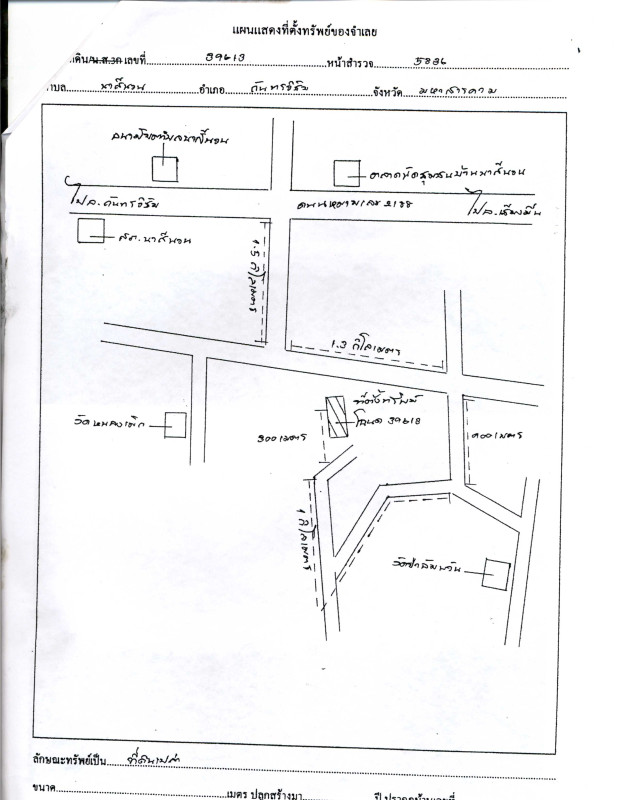 แผนแสดงที่ตั้งทรัพย์ของจำเลย
เดิน/น.ส.3ก เลขที่ 39613 หน้าสำรวจ 5836
ำบล นาสีนวน อำเภอ กันทรวิชัย จังหวัด มหาสารคาม
ตลาดนัดชุมชนบ้านนาสีนวน
ไป อ.กันทรวิชัย ถนนหมายเลข 2138 ไป อ.เชียงยืน
สภ.นาสีนวน
1.5 กิโลเมตร
1.3 กิโลเมตร
ที่ตั้งทรัพย์
โฉนด 39613
300 เมตร
วัดหนอง
900 เมตร
1 กิโลเมตร
วัดป่า
ลักษณะทรัพย์เป็น ที่ดินเปล่า
ขนาด เมตร ปลูกสร้างมา ปี ปรากฏบ้านเลขที่